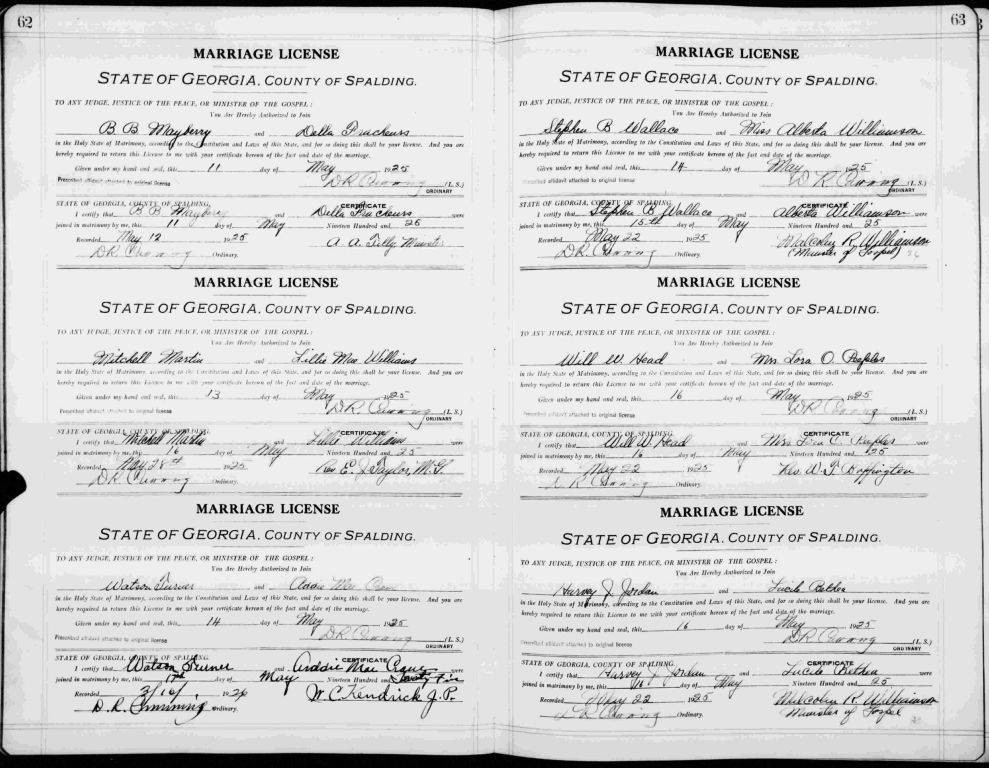 62
MARRIAGE LICENSE
STATE OF GEORGIA, COUNTY OF SPALDING.
TO ANY JUDGE, JUSTICE OF THE PEACE, OR MINISTER OF THE GOSPEL:
You Are Hereby Authorized to Join
B B Mayberry and Della
in the Holy State of Matrimony, according to the Constitution and Laws of this State, and for so doing this shall be your License. And you are
hereby required to return this License to me with your certificate hereon of the fact and date of the marriage.
Given under my hand and seal, this 11 day of May 1925
Prescribed affidavit attached to original license D R (L. S.)
ORDINARY
STATE OF GEORGIA, COUNTY OF SPALDING. CERTIFICATE
I certify that B B Mayberry and Della were
joined in matrimony by me, this 11 day of May Nineteen Hundred and 25
Recorded May 12 1925 A. A. Tilly Minister
D R Ordinary.
MARRIAGE LICENSE
STATE OF GEORGIA, COUNTY OF SPALDING.
TO ANY JUDGE, JUSTICE OF THE PEACE, OR MINISTER OF THE GOSPEL:
You Are Hereby Authorized to Join
Mitchell Martin and Lillie Mae Williams
in the Holy State of Matrimony, according to the Constitution and Laws of this State, and for so doing this shall be your License. And you are
hereby required to return this License to me with your certificate hereon of the fact and date of the marriage.
Given under my hand and seal, this 13 day of May 1925
Prescribed affidavit attached to original license D R (L. S.)
ORDINARY
STATE OF GEORGIA, COUNTY OF SPALDING. CERTIFICATE
I certify that Mitchell Martin and Lillie Williams were
joined in matrimony by me, this 16 day of May Nineteen Hundred and 25
Recorded May 28th 1925 Rev E. J. Taylor, M.G.
D R Ordinary.
MARRIAGE LICENSE
STATE OF GEORGIA, COUNTY OF SPALDING.
TO ANY JUDGE, JUSTICE OF THE PEACE, OR MINISTER OF THE GOSPEL:
You Are Hereby Authorized to Join
Watson Turner and Addie Mae
in the Holy State of Matrimony, according to the Constitution and Laws of this State, and for so doing this shall be your License. And you are
hereby required to return this License to me with your certificate hereon of the fact and date of the marriage.
Given under my hand and seal, this 14 day of May 1925
Prescribed affidavit attached to original license D R (L. S.)
ORDINARY
STATE OF GEORGIA, COUNTY OF SPALDING. CERTIFICATE
I certify that Watson Turner and Addie Mae Crane were
joined in matrimony by me, this 17th day of May Nineteen Hundred and Twenty Five
Recorded 2/16/ 1926 W. C. Kendrick J. P.
D. R. Cumming Ordinary.
63
MARRIAGE LICENSE
STATE OF GEORGIA, COUNTY OF SPALDING.
TO ANY JUDGE, JUSTICE OF THE PEACE, OR MINISTER OF THE GOSPEL:
You Are Hereby Authorized to Join
Stephen B Wallace and Miss Alberta Williamson
in the Holy State of Matrimony, according to the Constitution and Laws of this State, and for so doing this shall be your License. And you are
hereby required to return this License to me with your certificate hereon of the fact and date of the marriage.
Given under my hand and seal, this 14 day of May 1925
Prescribed affidavit attached to original license D R (L. S.)
ORDINARY
STATE OF GEORGIA, COUNTY OF SPALDING. CERTIFICATE
I certify that Stephen B Wallace and Alberta Williamson were
joined in matrimony by me, this 15th day of May Nineteen Hundred and 25
Recorded May 22 1925 Malcolm R. Williamson
D R Ordinary. (Minister of Gospel)
MARRIAGE LICENSE
STATE OF GEORGIA, COUNTY OF SPALDING.
TO ANY JUDGE, JUSTICE OF THE PEACE, OR MINISTER OF THE GOSPEL:
You Are Hereby Authorized to Join
Will W Head and Mrs Lora O Peeples
in the Holy State of Matrimony, according to the Constitution and Laws of this State, and for so doing this shall be your License. And you are
hereby required to return this License to me with your certificate hereon of the fact and date of the marriage.
Given under my hand and seal, this 16 day of May 1925
Prescribed affidavit attached to original license D R (L. S.)
ORDINARY
STATE OF GEORGIA, COUNTY OF SPALDING. CERTIFICATE
I certify that Will W Head and Mrs Lora O. Peeples were
joined in matrimony by me, this 16 day of May Nineteen Hundred and 125
Recorded May 22 1925 Rev W. T.
D R Ordinary.
MARRIAGE LICENSE
STATE OF GEORGIA, COUNTY OF SPALDING.
TO ANY JUDGE, JUSTICE OF THE PEACE, OR MINISTER OF THE GOSPEL:
You Are Hereby Authorized to Join
Harvey J Jordan and Lucile Bethea
in the Holy State of Matrimony, according to the Constitution and Laws of this State, and for so doing this shall be your License. And you are
hereby required to return this License to me with your certificate hereon of the fact and date of the marriage.
Given under my hand and seal, this 16 day of May 1925
Prescribed affidavit attached to original license D R (L. S.)
ORDINARY
STATE OF GEORGIA, COUNTY OF SPALDING. CERTIFICATE
I certify that Harvey J Jordan and Lucile Bethea were
joined in matrimony by me, this 16 day of May Nineteen Hundred and 25
Recorded May 22 1925 Malcolm R. Williamson
D R Ordinary. Minister of Gospel